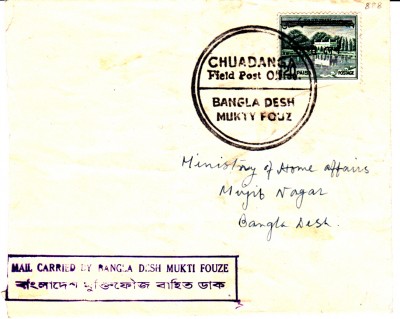 858
CHUADANGA
Field Post Office.
BANGLA DESH
MUKTY FOUZ
PAISA POSTAGE
Ministry of Home affairs
Mujib Nagar
Bangla Desh.
MAIL CARRIED BY BANGLA DESH MUKTI FOUZE
বাংলাদেশ মুক্তিফৌজ বাহিত ডাক